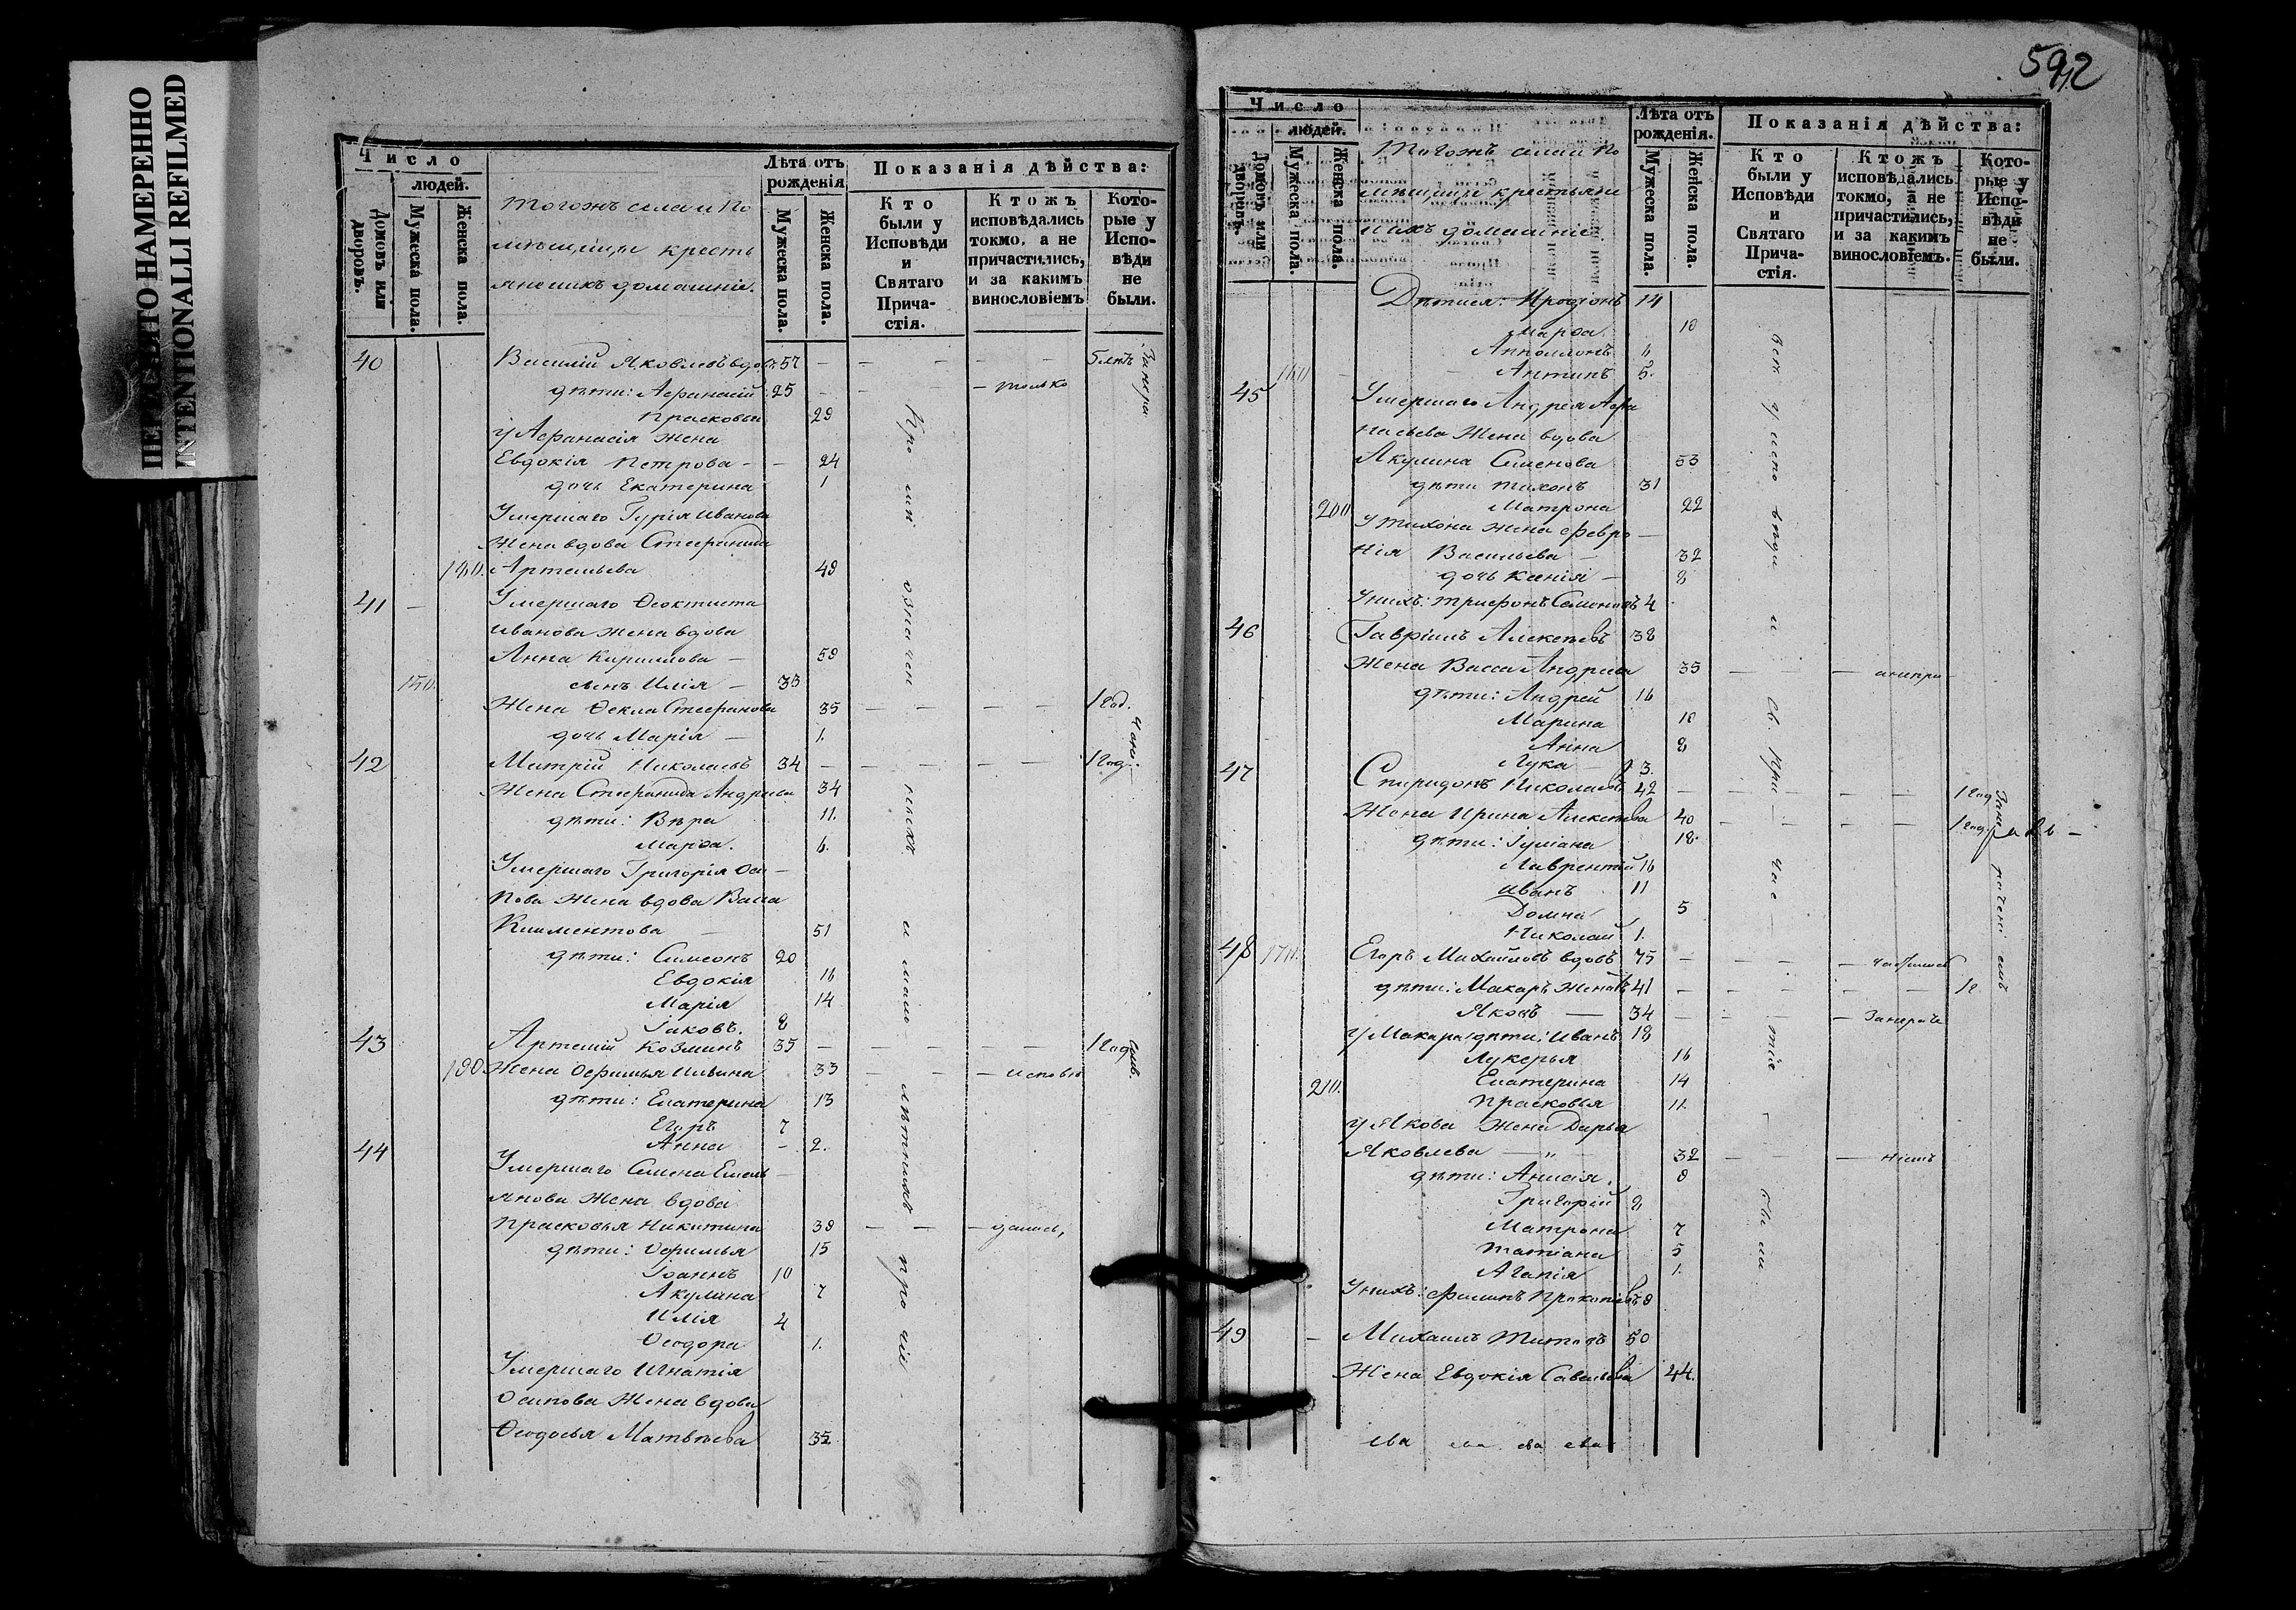 НЕГАТ СНЯТО НАМЕРЕННО
INTENTIONALLI REFILMED
Число
людей.
Домовъ или дворовъ.
Мужеска пола.
Женска пола.
Тогожъ села и По
мѣщицы кресть
яне и ихъ домашніе.
Лѣта отъ рожденія
Мужеска пола.
Женска пола.
Показанія дѣйства:
Кто были у Исповѣди и Святаго Прича-стія.
Ктожъ исповѣдались токмо, а не причастились, и за какимъ винословіемъ
Кото-рые у Испо-вѣди не были.
40 Василій Яковлевъ вдовъ 57 — — — 5 лѣтъ
дѣти: Афанасій 25 — — только
Прасковья 29
у Афанасія жена
Евдокія Петрова — — 24
дочь Екатерина 1
Умершаго Гурія Иванова
жена вдова Стефанида
180. Артемьева 49
41 — Умершаго Ѳеоктиста
Иванова жена вдова
Анна Кирилова — 59
150. сынъ Илія — 33
Жена Ѳекла Стефанова 35 — — — — 1 год.
дочь Марія — 1.
42 Митрій Николаевъ 34 — — — — — 1 год.
Жена Стефанида Андреева 34
дѣти: Вѣра 11.
Марѳа. 6.
Умершаго Григорія Оси —
пова жена вдова Васса
Климентова — 51
дѣти: Симеонъ 20
Евдокія 16
Марія 14
Іаковъ. 8
43 Артемій Козминъ 35 — — — — — 1 год
190 Жена Ѳефимья Ильина 33 — — — исповѣ
дѣти: Екатерина 13
Егоръ 7
Анна — 2.
44 Умершаго Семена Емель —
янова жена вдова
Прасковья Никитина 39 — — — дались,
дѣти: Ѳефимья 15
Іоаннъ 10
Акулина 7
Илія 4
Ѳеодора 1.
Умершаго Игнатія
Осипова жена вдова
Ѳеодосья Матвѣева 35
Кро ми означен ныхъ и мало лѣтнихъ про чіи
592
Число
людей.
Домовъ или дворовъ.
Мужеска пола.
Женска пола.
Тогожъ села и По
мѣщицы крестьяне
и ихъ домашніе
Лѣта отъ рожденія.
Мужеска пола.
Женска пола.
Показанія дѣйства:
Кто были у Исповѣди и Святаго Прича-стія.
Ктожъ исповѣдались токмо, а не причастились, и за какимъ винословіемъ.
Кото-рые у Испо-вѣди не были.
Дѣти ея: Иродіонъ 14
Марѳа 10
Апполлонъ 6
160 — — Антипъ 5.
45 Умершаго Андрея Афа
насьева жена вдова
Акулина Семенова 53
дѣти Тихонъ 31
200 Матрона 22
у Тихона жена Февро —
нія Васильева — 32
дочь Ксенія — 8
У нихъ: Трифонъ Семеновъ 4
46 Гавріилъ Алексѣевъ 38
Жена Васса Андреева 35 — — — анепри
дѣти: Андрей 16
Марина 10
Анна 8
Лука — 3.
47 Спиридонъ Николаевъ 42 — — — — — 1 год
Жена Ирина Алексѣева 40 — — — — 1 год.
дѣти: Іуліана 18.
Лаврентій 16
Иванъ 11
Домна 5
Николай 1.
48 170. Егоръ Михайловъ вдовъ 75 — — —
дѣти: Макаръ женатъ 41 — — — — — 1 г.
Яковъ — 34 — — —
у Макара дѣти: Иванъ 18
Лукерья 16
Екатерина 14
210. Прасковья 11.
у Якова жена Дарья
Яковлева — „ — 32 — — —
дѣти: Анисія. 8
Григорій 8
Матрона 7
Татіана 5
Агапія 1.
У нихъ: Филипъ Прокопіевъ 8
49 — Михаилъ Титовъ 50
Жена Евдокія Савельева 44.
ева ева ева ева
Всѣ у испо вѣди и Св. При — час — тіе — были